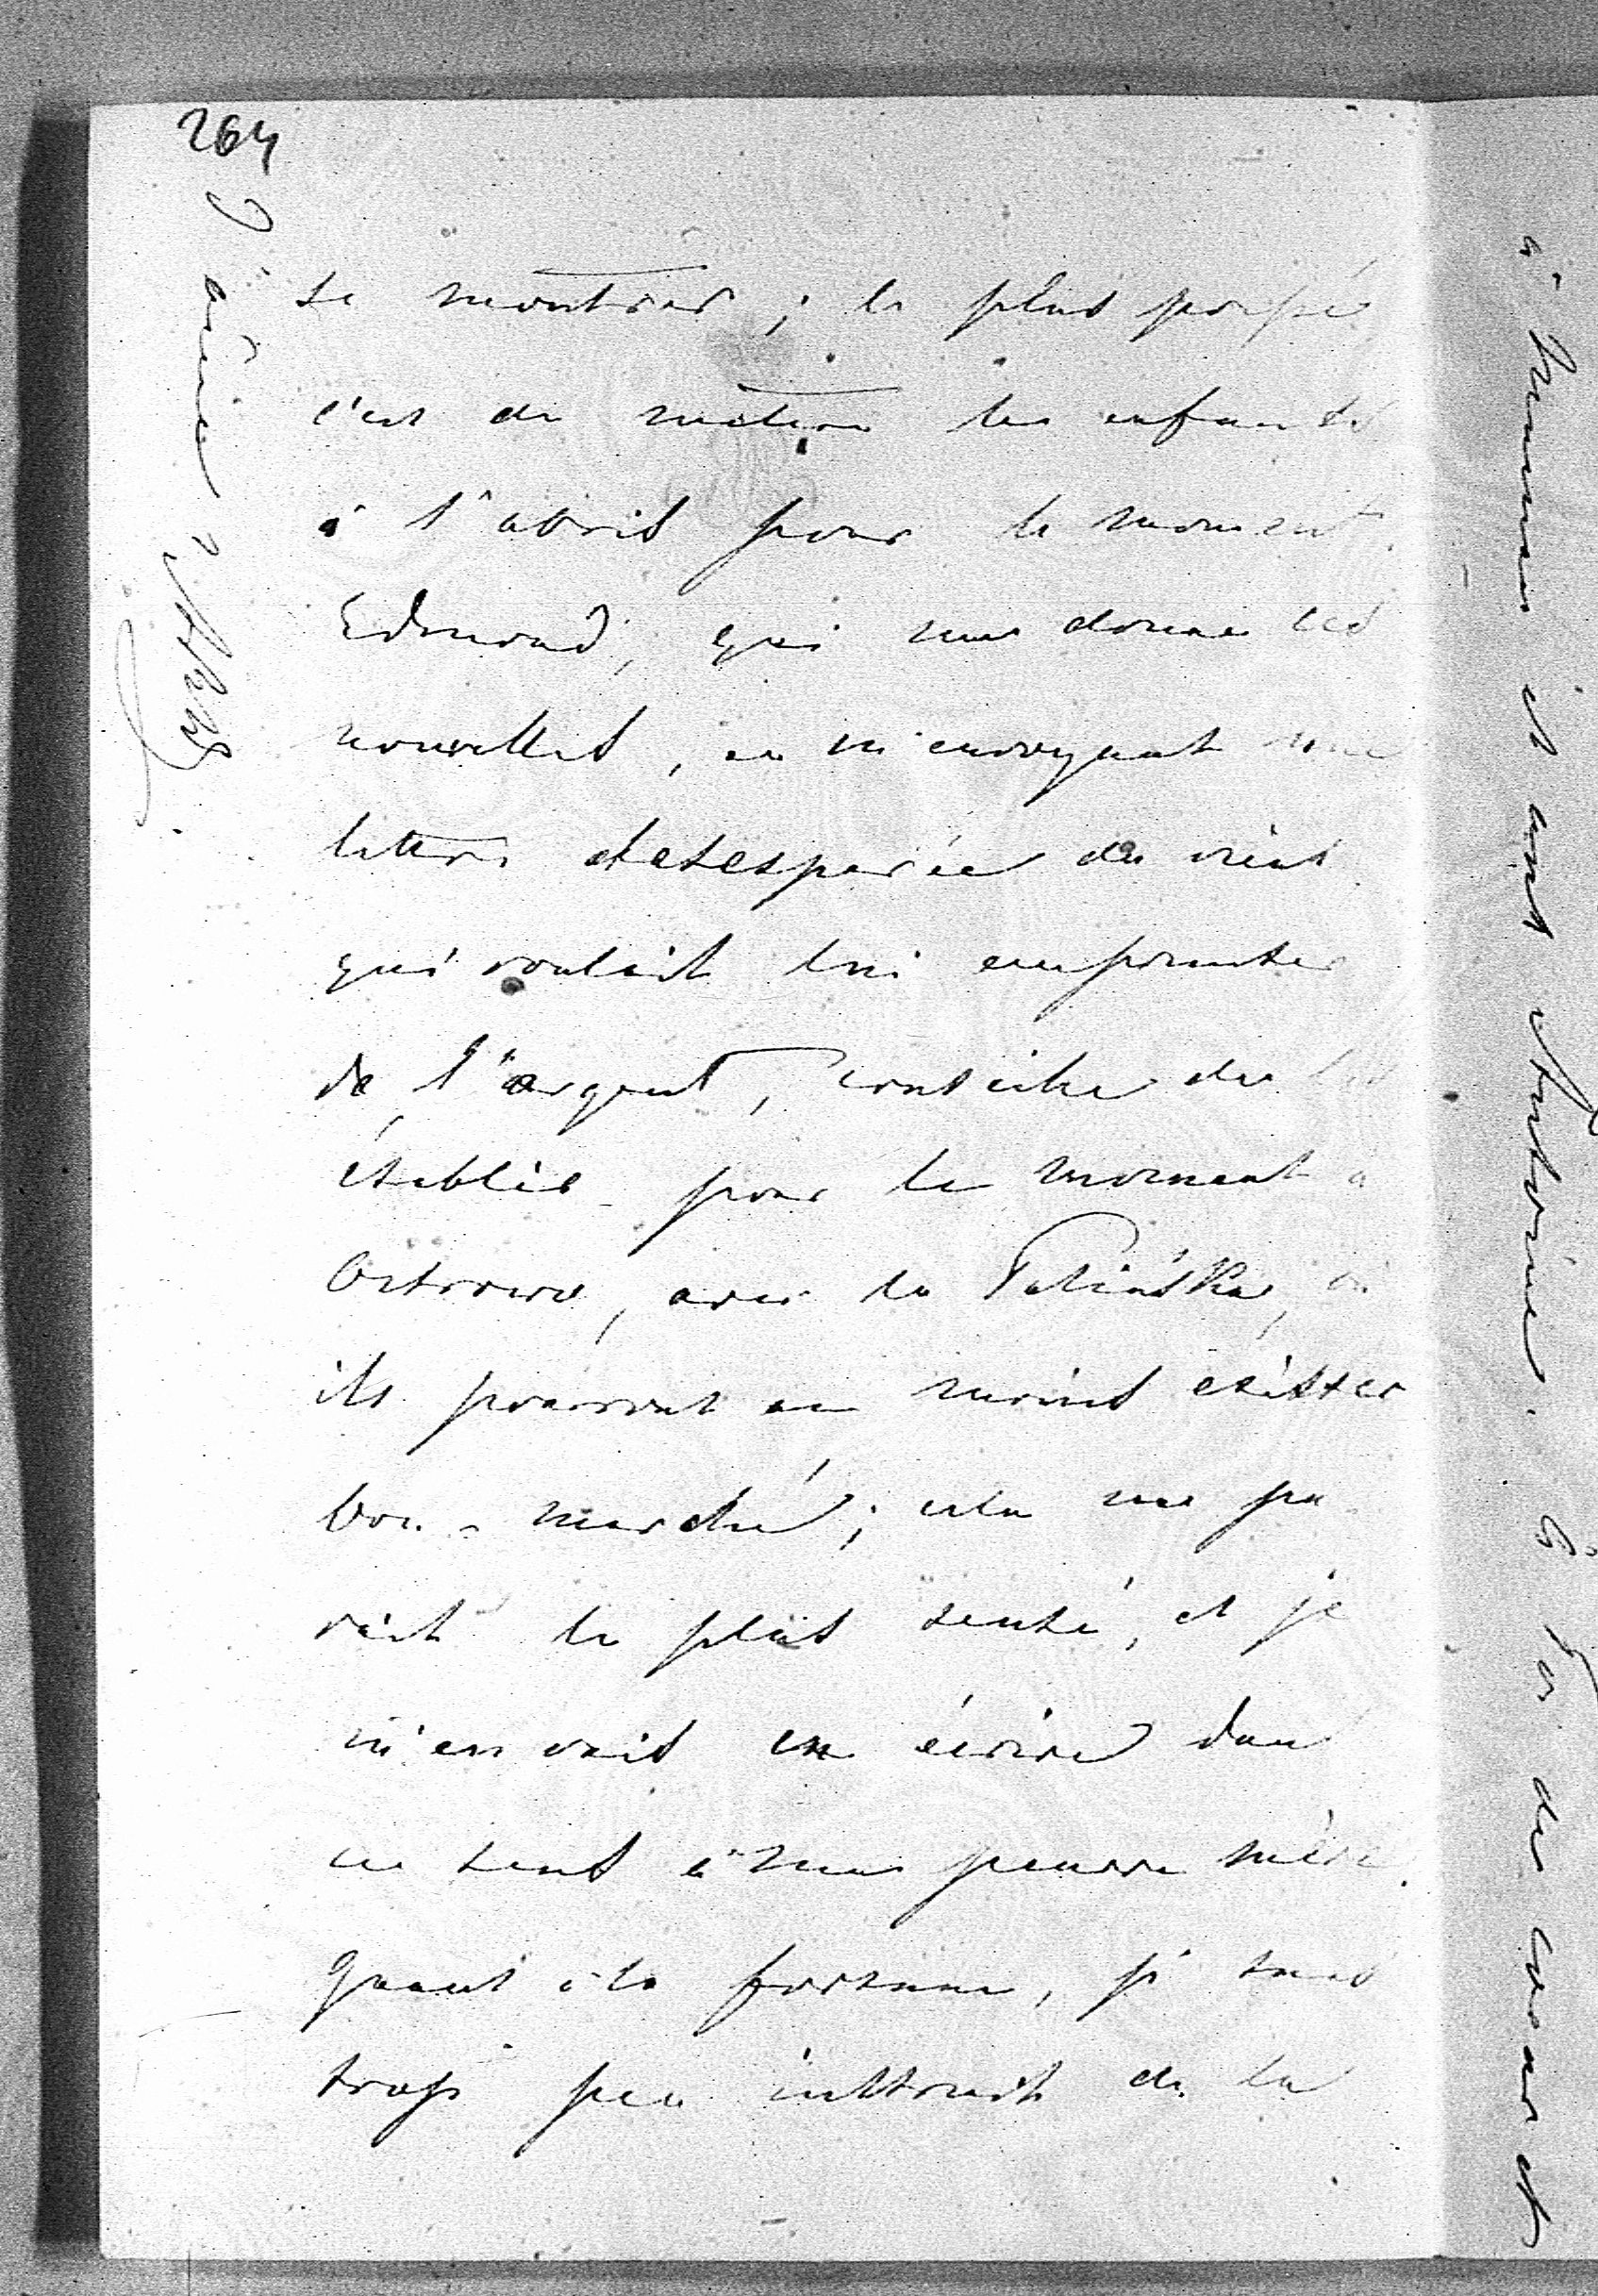 264
se montrer ; le plus pressé
c'est de mettre les enfants
à l'abris pour le moment.
Edmond, qui me donne ces
nouvelles, en m'envoyant une
lettre desesperée du vieux
qui voulait lui emprunter
de l'argent, conseille de les
établir pour le moment à
Ostrowo, avec la
ils pourront au moins exister
bon-marché ; cela me pa
rait le plus sensé, et je
m'en vais en écrire dans
ce sens à ma pauvre mère.
Quant à la fortune, je suis
trop peu instruit de la
à maman et aux
de coeur et